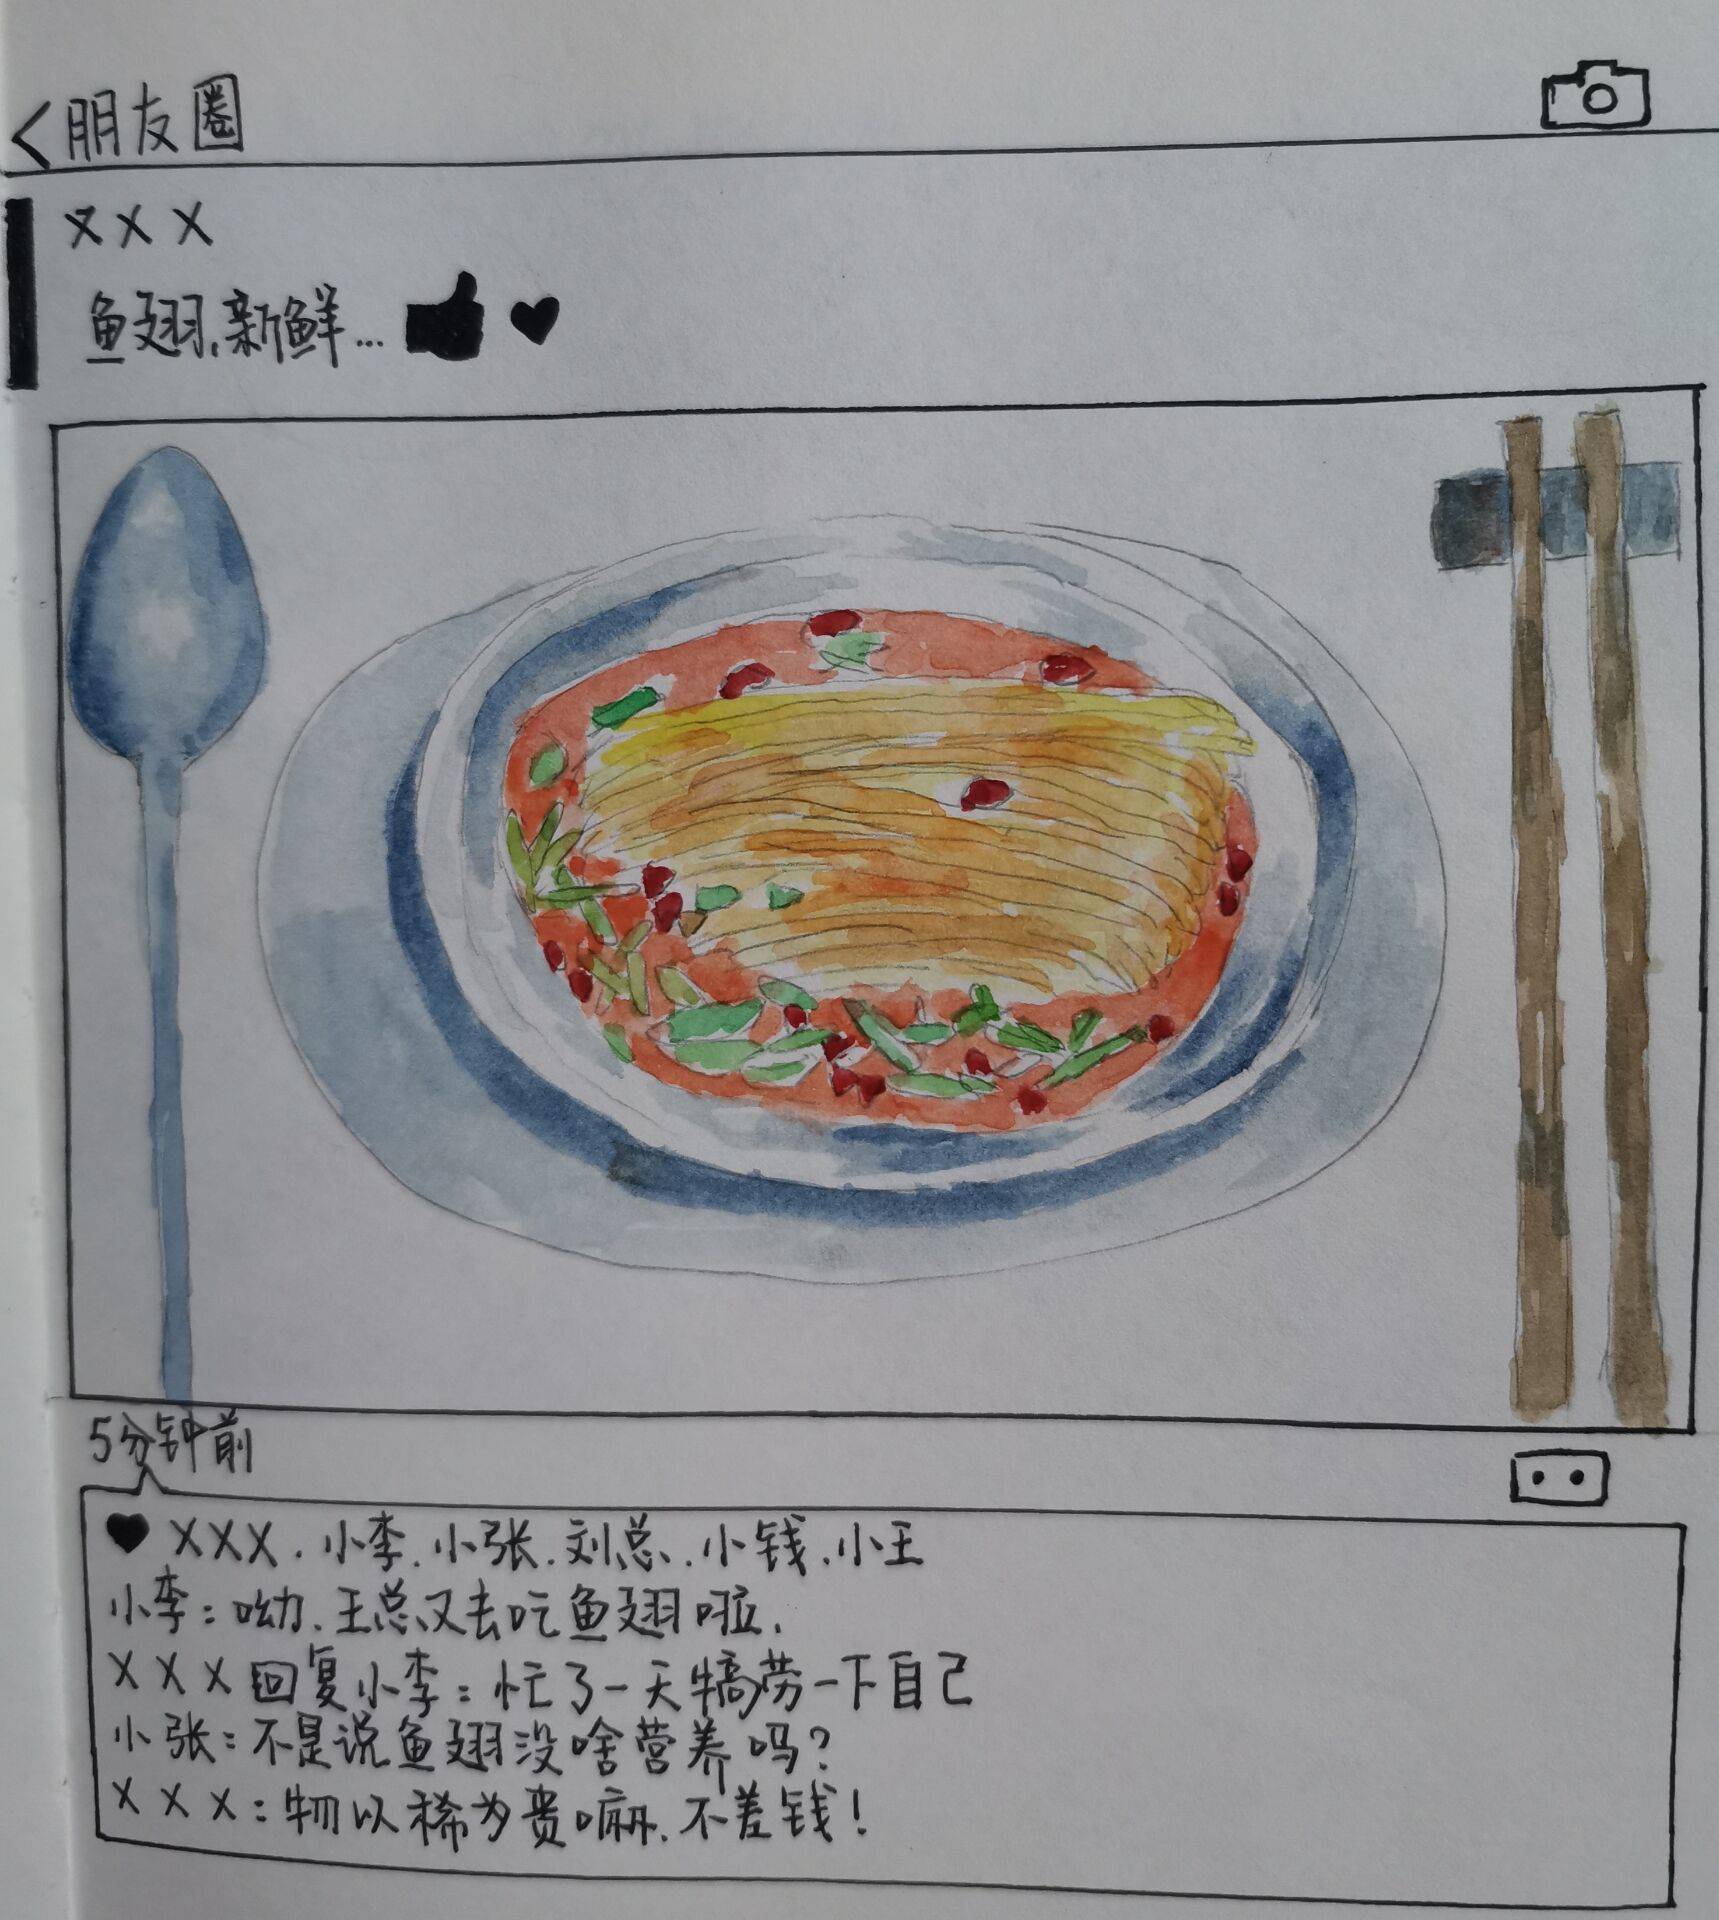 <朋友圈
XXX
鱼翅,新鲜...
5分钟前
XXX.小李.小张.刘总.小钱.小王
小李:呦.王总又去吃鱼翅啦.
XXX回复小李:忙了一天犒劳一下自己
小张:不是说鱼翅没啥营养吗?
XXX:物以稀为贵嘛.不差钱!